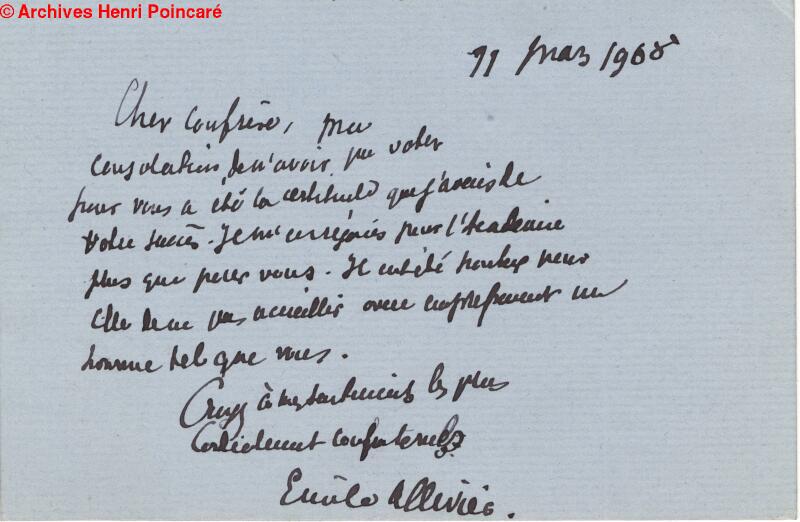 © Archives Henri Poincaré
11 mars 1908
Cher confrère, ma
consolation de n'avoir pu voter
pour vous a été la certitude que j'avais de
votre succès. Je m'en réjouis pour l'Académie
plus que pour vous. Il eut été honteux pour
elle de ne pas accueillir avec empressement un
homme tel que vous.
Croyez à mes sentiments les plus
cordialement confraternels
Emile Ollivier.